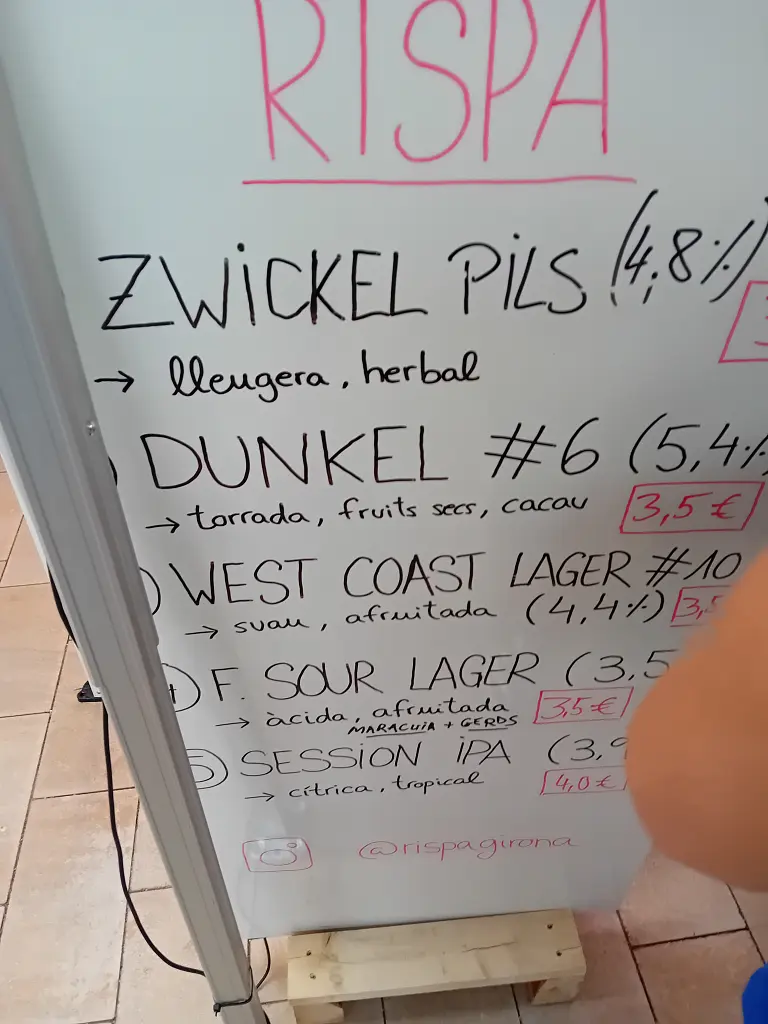 RISPA
ZWICKEL PILS (4,8%)
→ lleugera, herbal
DUNKEL #6 (5,4%
→ torrada, fruits secs, cacau 3,5 €
WEST COAST LAGER #10
→ suau, afruitada (4,4%) 3,5
4) F. SOUR LAGER (3,5
→ àcida, afruitada 3,5 €
MARACUIA + GERDS
5) SESSION IPA (3,9
→ cítrica, tropical 4,0 €
@rispagirona